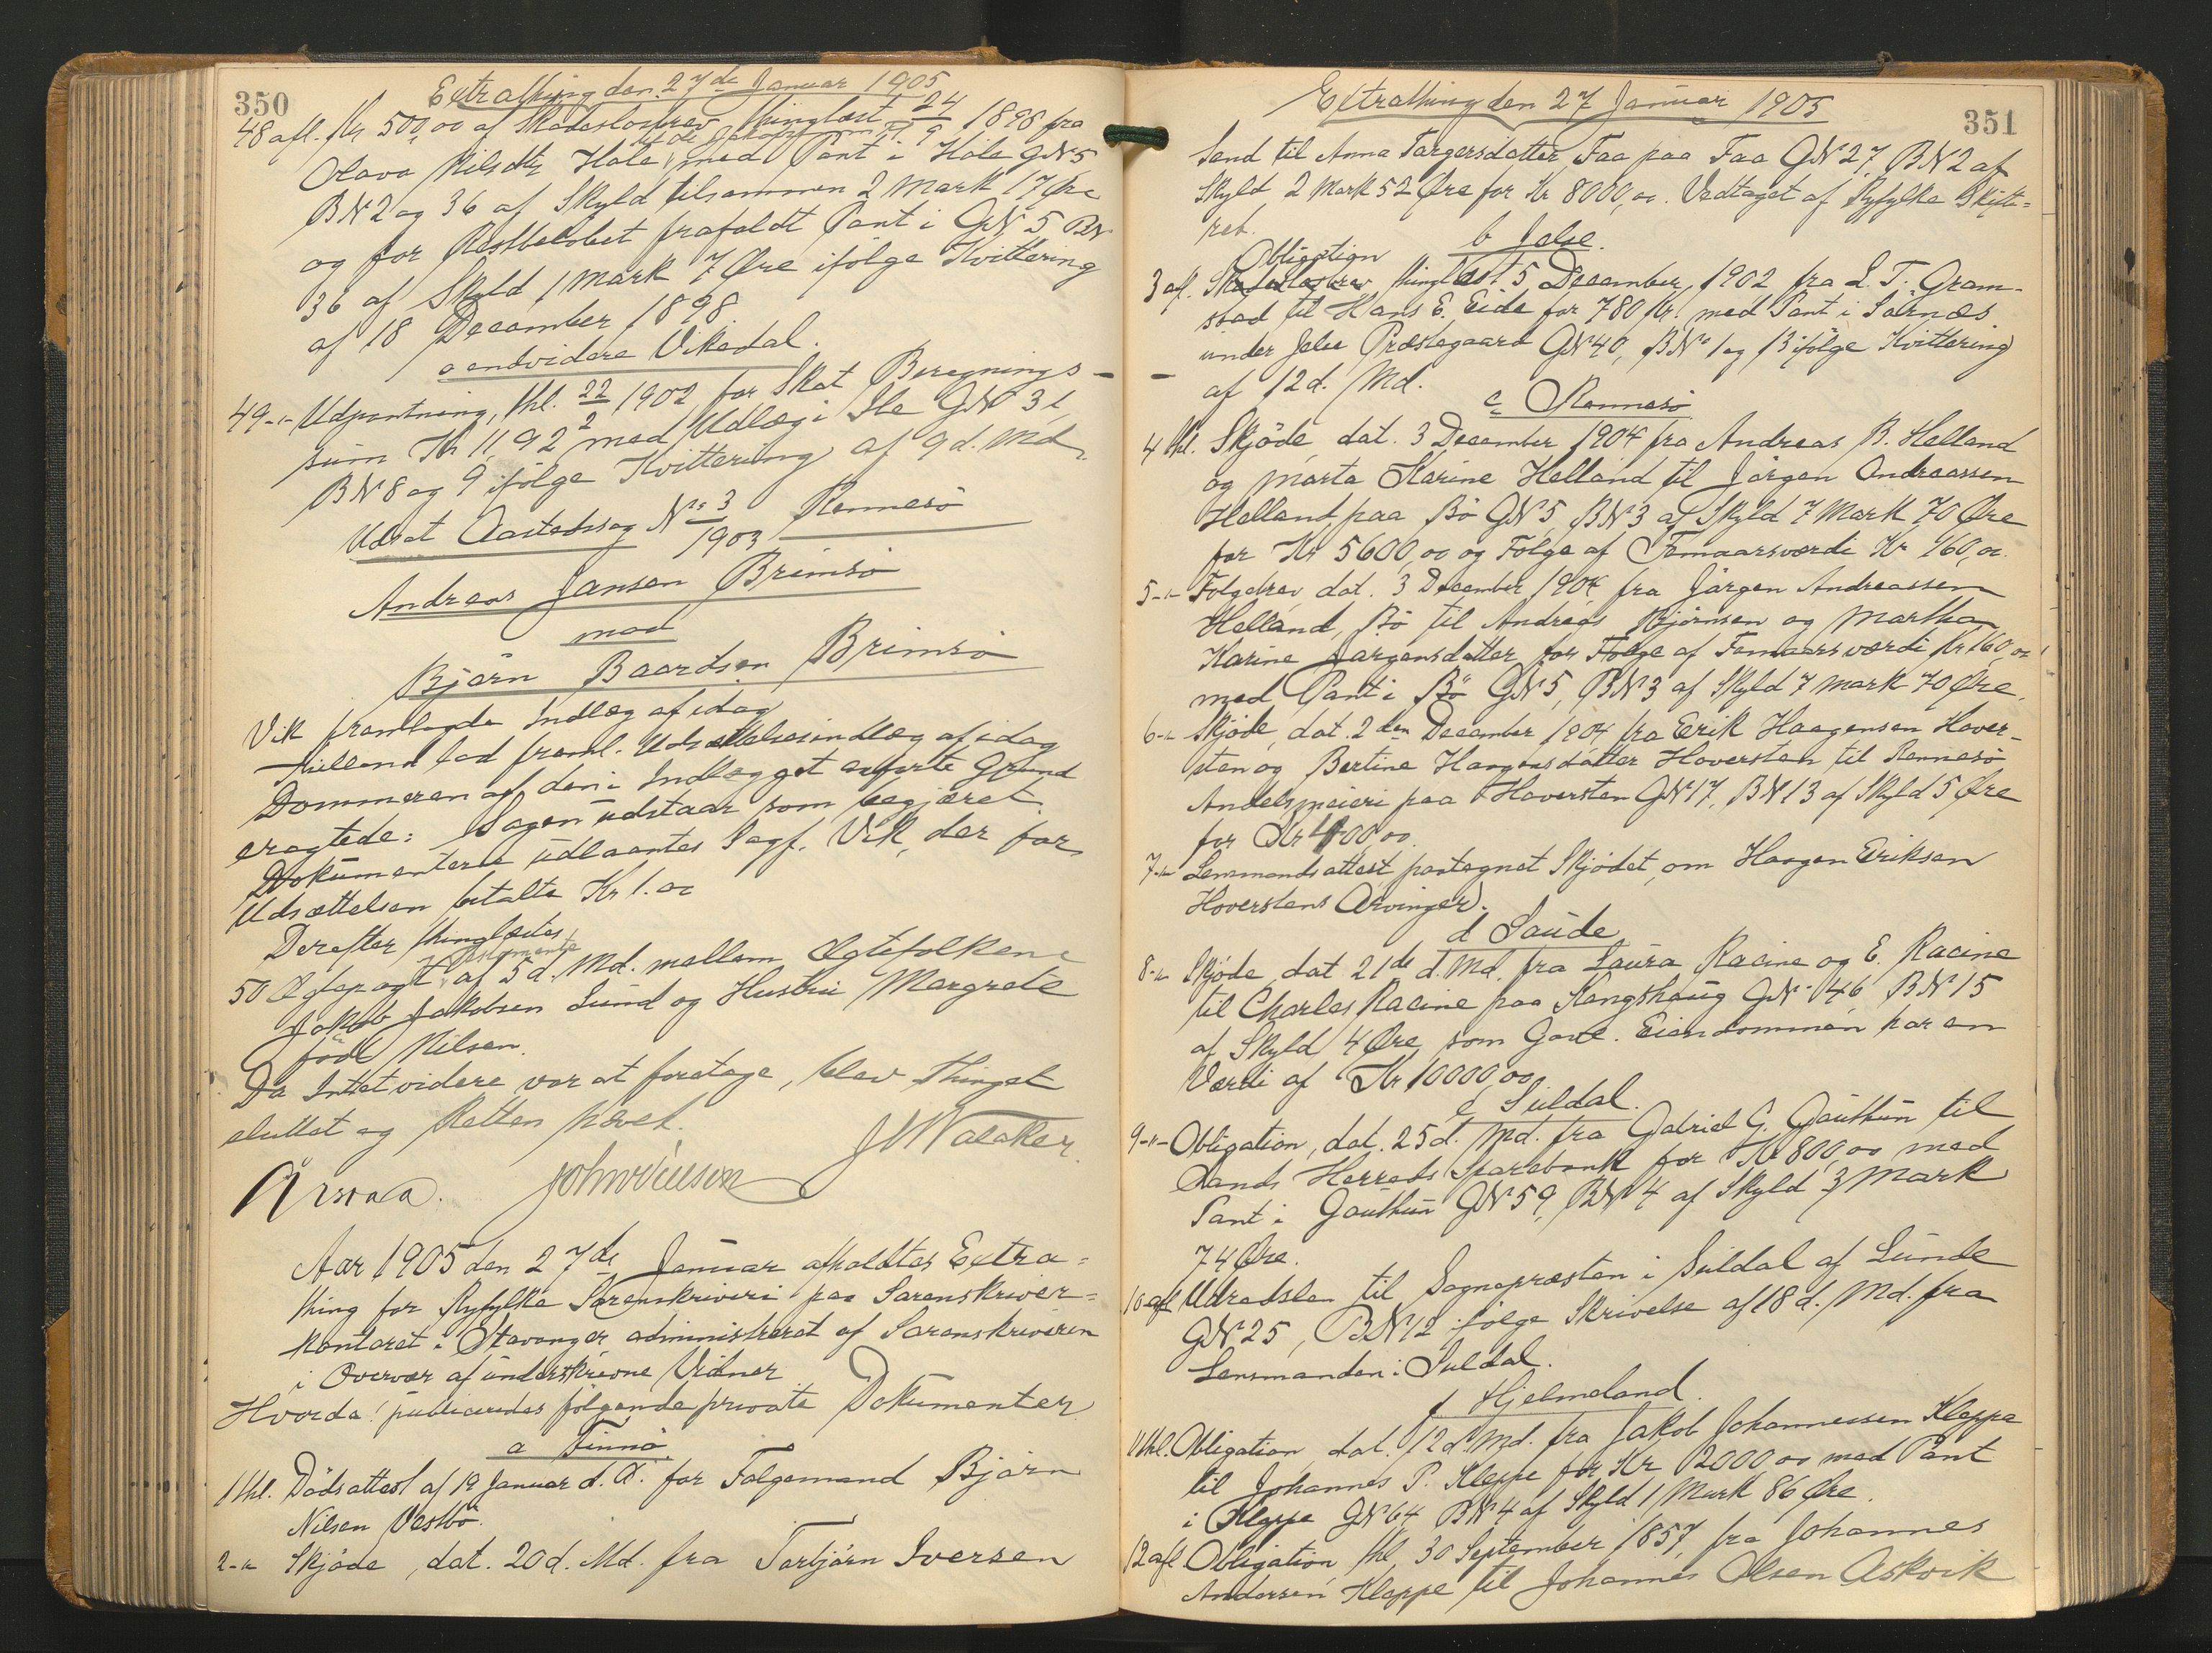 350
Extrathing den 27de Januar 1905
48 afl. Kr 500,00 af Skadesløsbrev thinglæst 24/9 1898 fra
Olava Nilsdtr Hole, med Pant i Hole GN 5
BN 2 og 36 af Skyld tilsammen 2 Mark 17 Øre
og for Restbeløbet frafaldt Pant i GN 5 BN
36 af Skyld 1 Mark 7 Øre ifølge Kvittering
af 18 December 1898.
a endvidere Vikedal.
49 -"- Udpantning, thl. 22/2 1902 for Skat Beregnings-
sum Kr 11,92 med Udlæg i Ile GN 31
BN 8 og 9 ifølge Kvittering af 9 d. Md.
Udsat Aastedssag No 3/1903 Rennesø
Andreas Jansen Brimsø
mod
Bjørn Baardsen Brimsø
Vik fremlagde Indlæg af idag
lod freml. Udsættelsesindlæg af idag
Dommeren af den i Indlægget anførte Grund
eragtede: Sagen udstaar som begjæret.
Dokumenterne udlaantes Sagf. Vik, der for
Udsættelsen betalte Kr 1.00
Derefter thinglæstes
50 Ægtepagt af 5 d. Md. mellem Ægtefolkene
Jakob Jakobsen Lund og Hustru Margrete
født Nilsen.
Da Intet videre var at foretage, blev Thinget
sluttet og Retten hævet.
Aar 1905 den 27de Januar afholdtes Extra=
thing for Ryfylke Sorenskriveri paa Sorenskriver=
kontoret i Stavanger administreret af Sorenskriveren
i Overvær af underskrevne Vidner
Hvorda: publiceredes følgende private Dokumenter
a Finnø
1 thl. Dødsattest af 19 Januar d. A. for Følgemand Bjørn
Nilsen Vestbø.
2 -"- Skjøde, dat. 20 d. Md. fra Torbjørn Iversen
351
Extrathing den 27 Januar 1905
Sand til Anna Torgersdatter Faa paa Faa GN 27, BN 2 af
Skyld 2 Mark 52 Øre for Kr 8000,00. Vedtaget af Ryfylke Skifte=
ret.
b Jelse.
Obligation
3 afl. Skadesløsbrev thinglæst 5 December 1902 fra L. T. Gram-
stad til Hans E. Eide for 780 Kr. med Pant i Sornæs
under Jelse Præstegaard GN 40, BNo 1 og 13 ifølge Kvittering
af 12 d. Md.
c Rennesø
4 thl. Skjøde, dat. 3 December 1904 fra Andreas B. Helland
og Marta Karine Helland til Jørgen Andreassen
Helland paa Bø GN 5, BN 3 af Skyld 7 Mark 70 Øre
for Kr 5600,00 og Følge af Femaarsværdi Kr 160,00.
5 -"- Følgebrev, dat. 3 December 1904 fra Jørgen Andreassen
Helland, Bø til Andreas Bjørnsen og Martha
Karine Jørgensdatter for Følge af Femaarsværdi Kr 160,00
med Pant i Bø GN 5, BN 3 af Skyld 7 Mark 70 Øre.
6 -"- Skjøde, dat. 2den December 1904 fra Erik Haagensen Hover-
sten og Bertine Haagensdatter Hoversten til Rennesø
Andelsmeieri paa Hoversten GN 17, BN 13 af Skyld 5 Øre
for Kr 400,00.
7 -"- Lensmandsattest paategnet Skjødet, om Haagen Eriksen
Hoverstens Arvinger.
d Saude
8 -"- Skjøde, dat 21de d. Md. fra Laura Racine og E. Racine
til Charles Racine paa Kongshaug GN 46 BN 15
af Skyld 4 Øre, som Gave. Eiendommen har en
Værdi af Kr 10000,00.
e Suldal.
9 -"- Obligation, dat. 25 d. Md. fra Gabriel G. Gauthun til
Sands Herreds Sparebank for Kr 800,00 med
Pant i Gauthun GN 59, BN 4 af Skyld 3 Mark
74 Øre.
10 afl Udredsle til Sognepræsten i Suldal af Lunde
GN 25, BN 12 ifølge Skrivelse af 18 d. Md. fra
Lensmanden i Suldal.
f Hjelmeland.
11 thl. Obligation, dat. 12 d. Md. fra Jakob Johannessen Kleppe
til Johannes P. Kleppe for Kr 2000,00 med Pant
i Kleppe GN 64 BN 4 af Skyld 1 Mark 86 Øre.
12 afl Obligation, thl. 30 September 1857, fra Johannes
Andersen Kleppe til Johannes Olsen Askvik